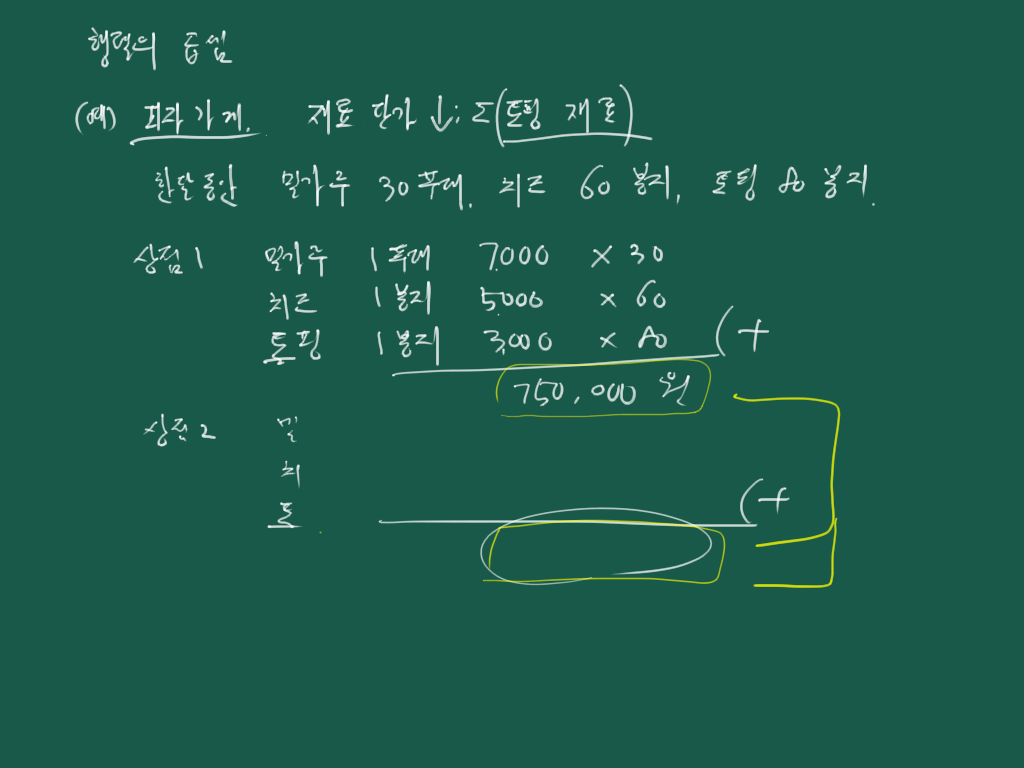 행렬의 곱셈
(예) 피자가게. 재료 단가 ↓: Σ(토핑 재료)
한달동안 밀가루 30푸대, 치즈 60봉지, 토핑 80봉지.
상점1 밀가루 1푸대 7,000 × 30
치즈 1봉지 5,000 × 60
토핑 1봉지 3,000 × 80 (+
750,000원
상점2 밀
치
토 (+